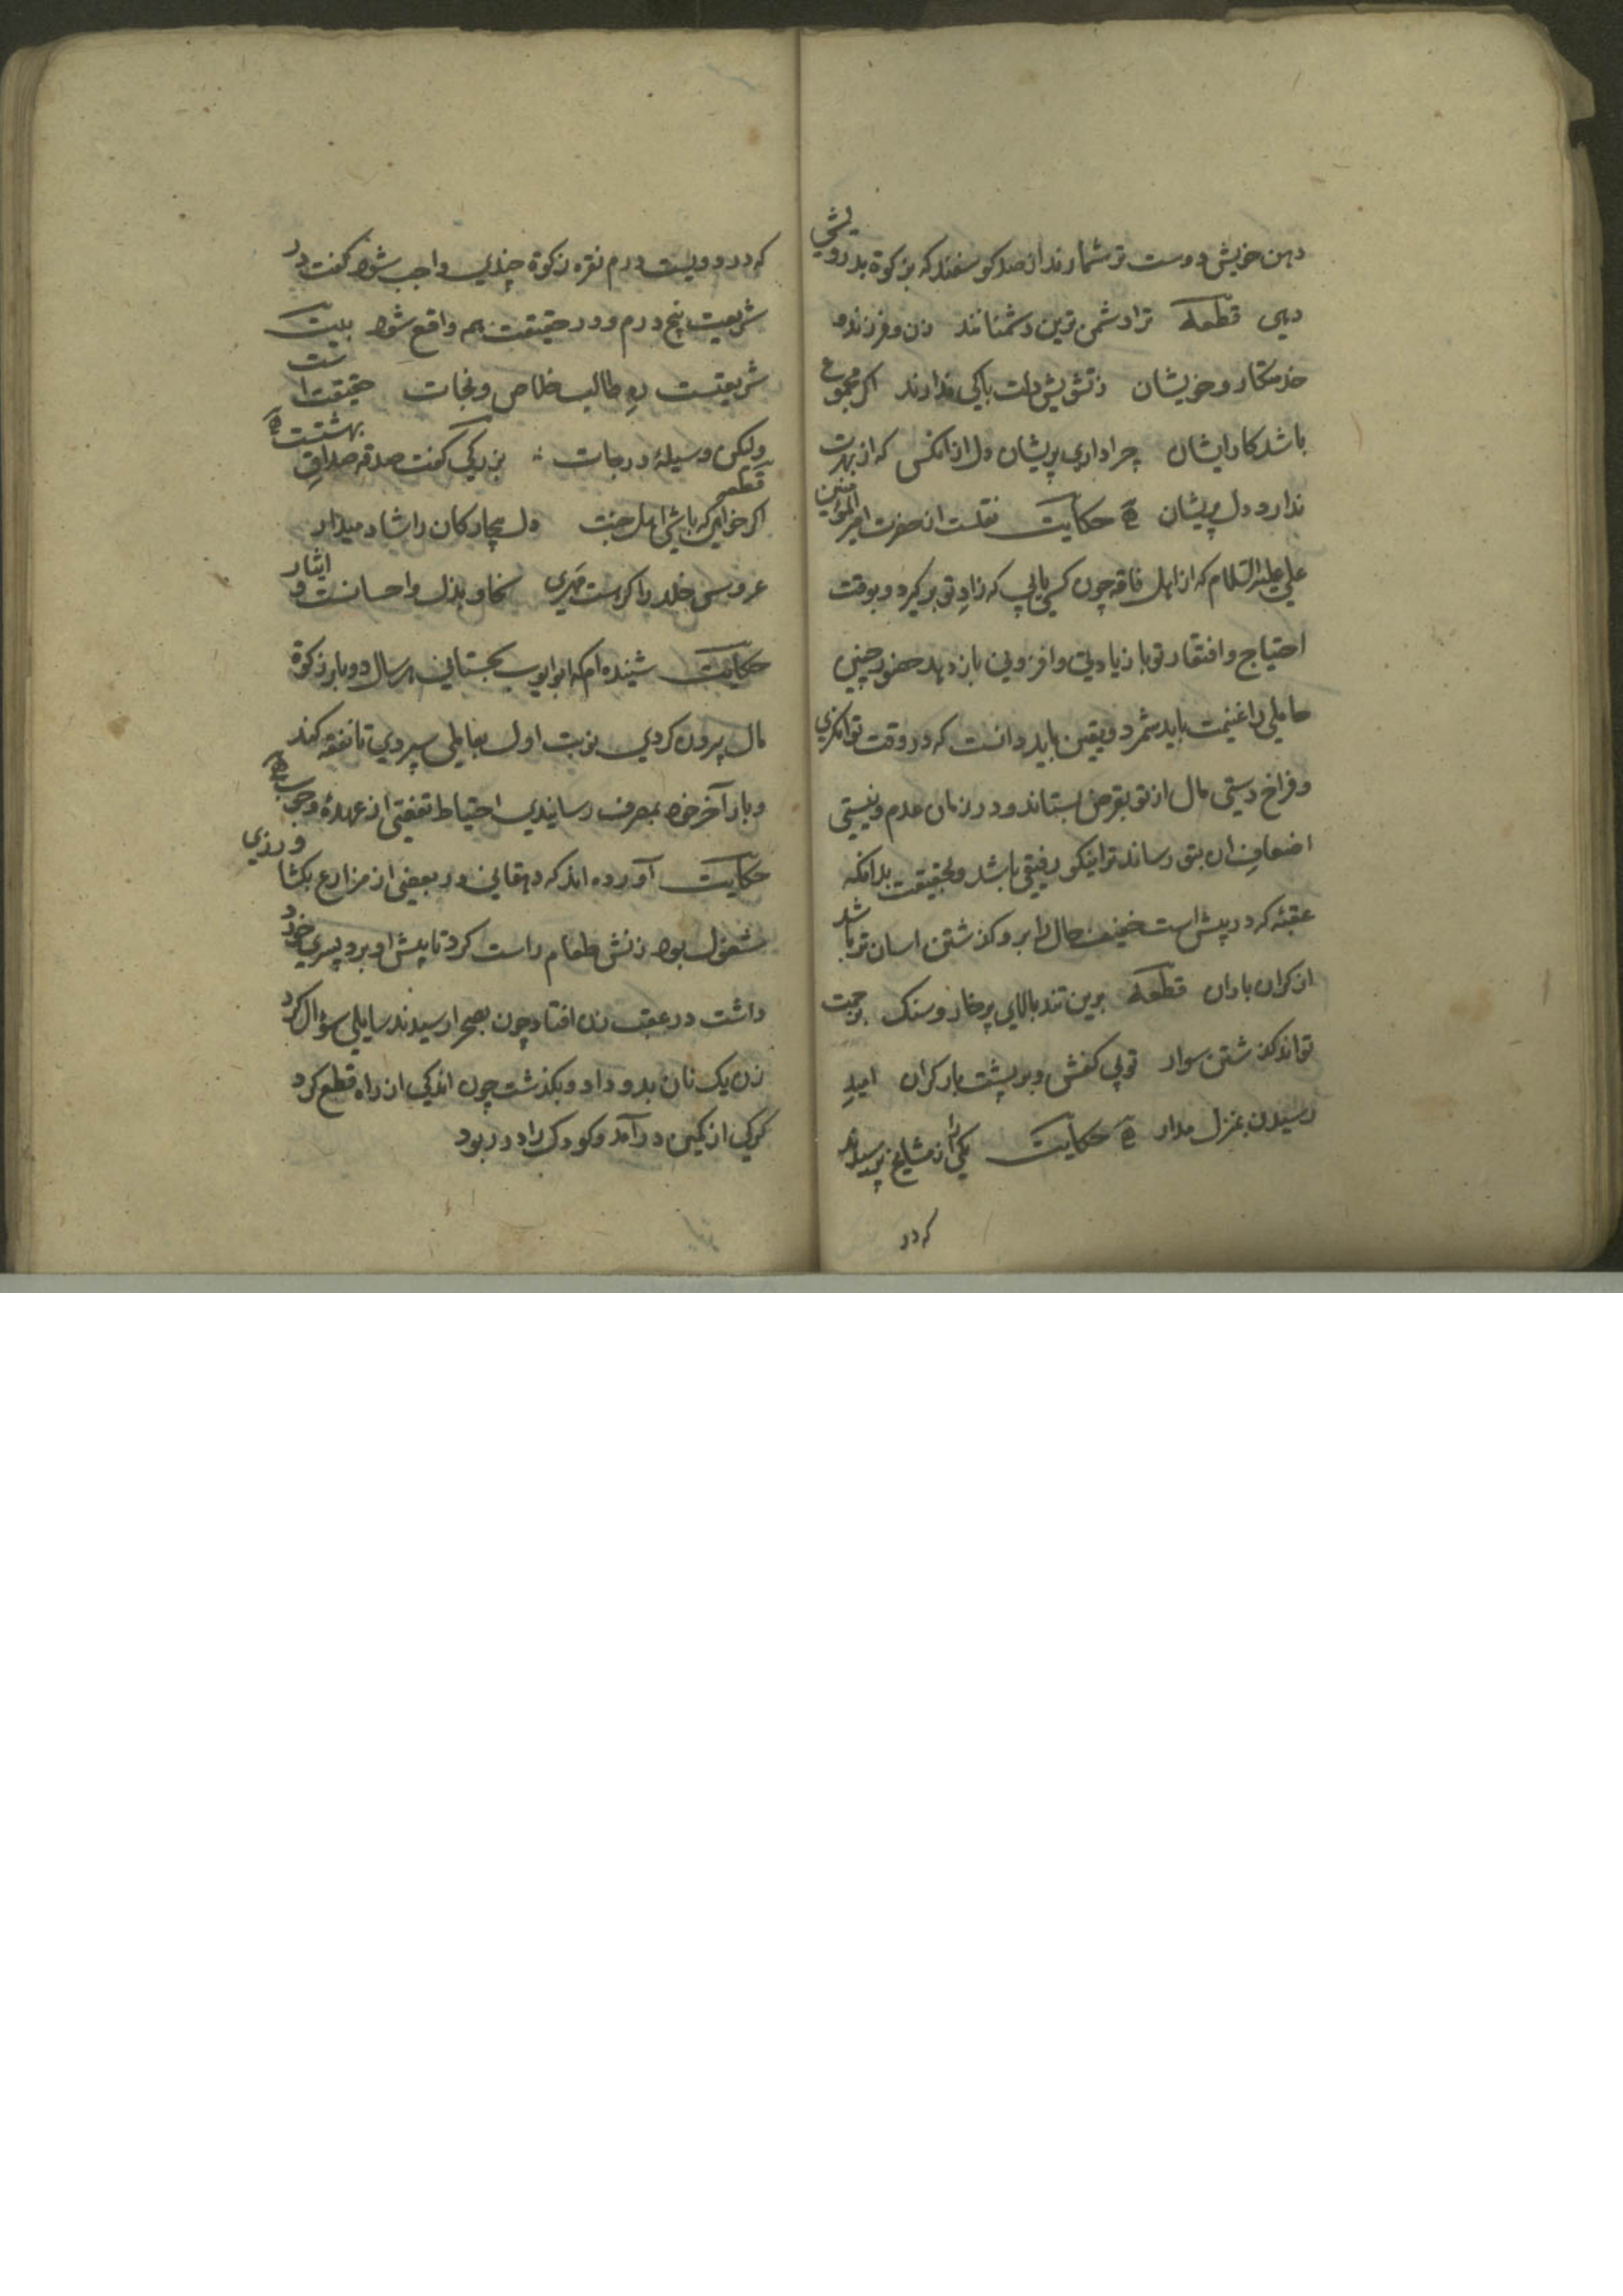 دهن خویش دوست تر شمارند از صد کوسفند که بزکوة بدرویشی
دهی قطعه ترا دشمن ترین دشمنانند زن و فرزند و
خدمتکار و خویشان ز تشویش دلت باکی ندارند اکر مجموع
باشد کار ایشان چرا داری پریشان دل از انکس که از بهرت
ندارد دل پریشان حکایت نقلست از حضرت امیر المؤمنین
علی علیه السلام که از اهل فاقه چون کسی یابی که زاد تو بر کیرد و بوقت
احتیاج و افتقار تو با زیادتی و افزونی باز دهد حضور چنین
حاملی را غنیمت باید شمرد و یقین باید دانست که در وقت توانکری
و فراخ دستی مال از تو بقرض بستاند و در زمان عدم و نیستی
اضعاف ان بتو رساند ترا نیکو رفیقی باشد و بحقیقت بدانکه
عقبهٔ که در پیش است خفیف حال را برو کذشتن اسان تر باشد
از کران باران قطعه برین تند بالای پر خار و سنک
تواند کذشتن سوار تو پی کفش و بر پشت بار کران امید
رسیدن بمنزل مدار حکایت یکی را از مشایخ پرسیدند
که در
که در دویست درم نقره زکوة چندی واجب شود کفت در
شریعت پنج درم و در حقیقت همه واقع شود بیت
شریعتست ره طالب خلاص و نجات حقیقت است
ولیکن وسیلهٔ درجات بزرکی کفت صدقه صداق بهشتست
قطعه
اکر خواهی که باشی اهل جنت دل بیچارکان را شاد میدار
عروس خلد را کرهست مهری سخا و بذل و احسانست و ایثار
حکایت شنیده ام که ابو ایوب سجستانی هر سال دو بار زکوة
مال بیرون کردی نوبت اول بعاملی سپردی تا نفقه کند
و بار آخر خود بمصرف رسانیدی احتیاط تفصی از عهدهٔ وجوب
حکایت آورده اند که دهقانی در بعضی از مزارع بکشاورزی
مشغول بود زنش طعام راست کرد تا پیش او برد پسری خرد
داشت در عقب زن افتاد چون بصحرا رسیدند سایلی سؤال کرد
زن یک نان بدو داد و بکذشت چون اندکی از راه قطع کرد
کرکی از کمین در آمد و کودک را در ربود